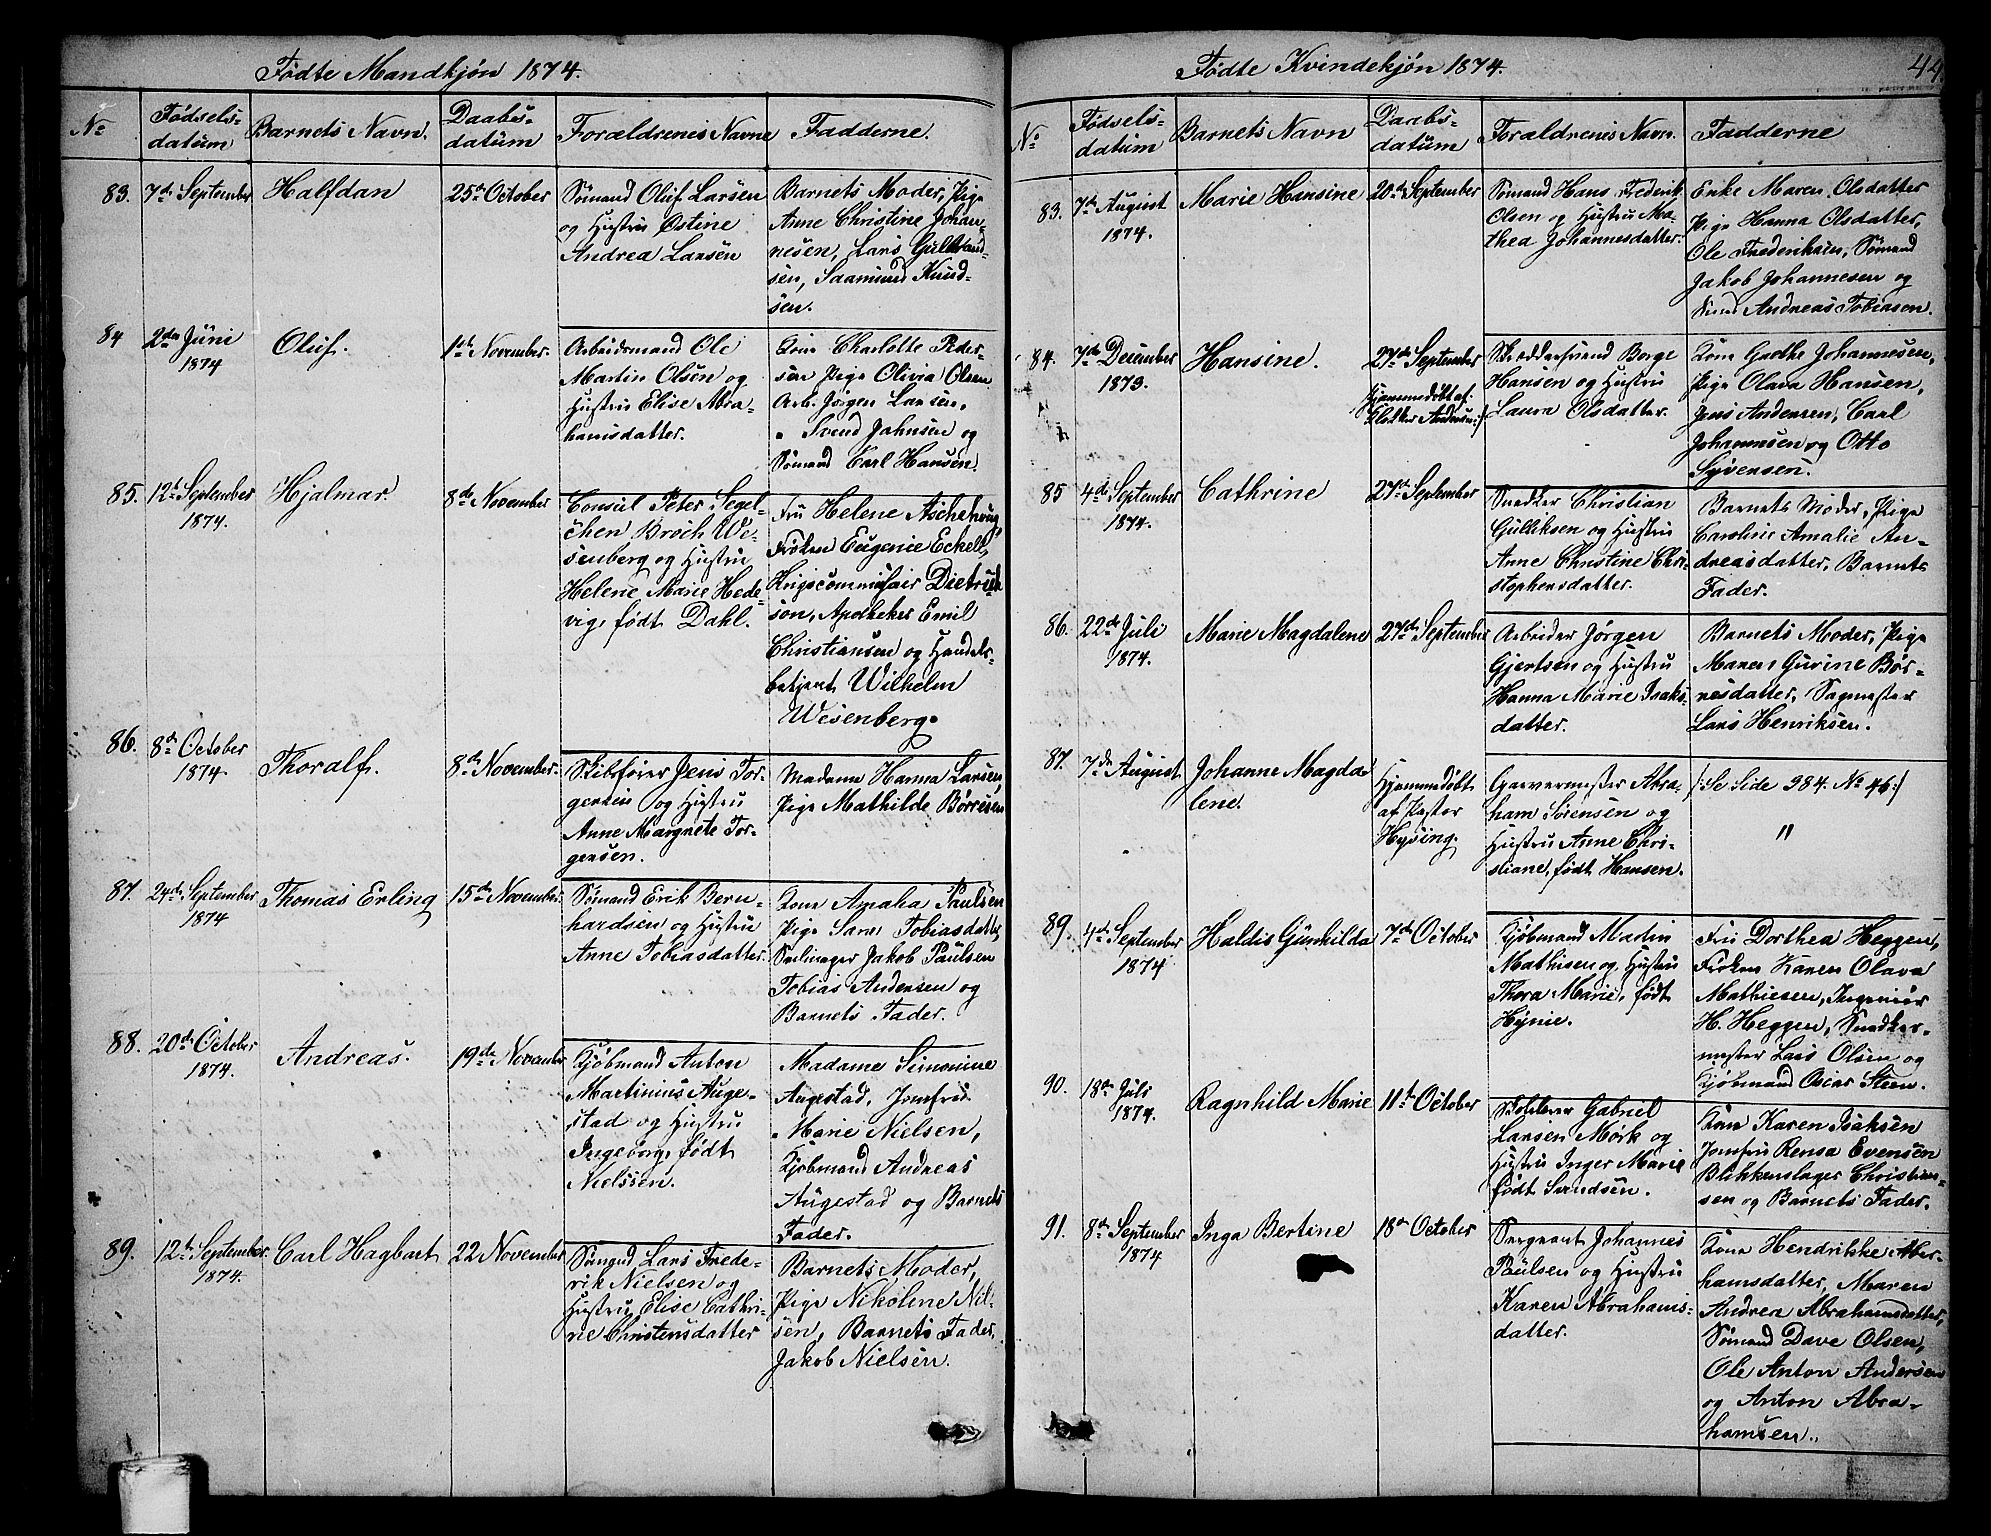 Fødte Mandkjøn 1874.
No
Fødsels-
datum
Barnets Navn.
Daabs-
datum
Forældrenes Navne
Fadderne.
83.
7de September
Halfdan
25de October
Sømand Oluf Larsen
og Hustru Østine
Andrea Larsen
Barnets Moder, Pige
Anne Christine Johan-
nesen, Lars Gulbrand-
sen, Saamund Knud-
sen.
84
2den Juni
1874
Oluf.
1ste November.
Arbeidsmand Ole
Martin Olsen og
Hustru Elise Abra-
hamsdatter.
Kone Charlotte Peder-
sen Pige Olivia Olsen
Arb. Jørgen Larsen,
" Svend Johnsen og
Sømand Carl Hansen.
85.
12te September
1874.
Hjalmar.
8de November
Consul Peter Segel-
chen Broch We-
senberg og Hustru
Helene Marie Hede-
vig, født Dahl.
Fru Helene Aschehoug,
Frøken Eugenie Eckell,
Krigscommissair Dietrich-
son, Apotheker Emil
Christiansen og Handels-
betjent Wilhelm
Wesenberg.
86.
8de October
1874.
Thoralf.
8de November.
Skibsfører Jens Tor-
gersen og Hustru
Anne Margrete Tor-
gersen.
Madame Hanna Larsen,
Pige Mathilde Børresen
87.
24de September
1874
Thomas Erling
15de November.
Sømand Erik Bern-
hardsen og Hustru
Anne Tobiasdatter.
Kone Amalia Paulsen
Pige Sara Tobiasdatter,
Seilmager Jakob Paulsen
Tobias Andersen og
Barnets Fader.
88.
20de October
1874.
Andreas.
19de November
Kjøbmand Anton
Martinius Auge-
stad og Hustru
Ingeborg, født
Nielssen.
Madame Simonine
Augestad, Jomfru
Marie Nielsen,
Kjøbmand Andreas
Augestad og Barnets
Fader.
89.
12te September.
1874.
Carl Hagbart
22 November
Sømand Lars Frede-
rik Nielsen og
Hustru Elise Cathri-
ne Christensdatter
Barnets Moder,
Pige Nikoline Nil-
sen, Barnets Fader,
Jakob Nielsen.
Fødte Kvindekjøn 1874.
44.
No
Fødsels-
datum
Barnets Navn
Daabs-
datum
Forældrenes Navn.
Fadderne
83.
7de August
1874.
Marie Hansine
20de September
Sømand Hans Frederik
Olsen og Hustru Ma-
thea Johannesdatter.
Enke Maren Olsdatter
Pige Hanna Olsdatter,
Ole Frederiksen, Sømand
Jakob Johannesen og
Andreas Tobiasen.
84.
7de December
1873.
Hansine.
27de September
Hjemmedøbt af
Klokker Andersen:/
Skræddersvend Borge
Hansen og Hustru
Laura Olsdatter.
Kone Grethe Johannesen,
Pige Olava Hansen,
Jens Andersen, Carl
Johannesen og Otto
Syvensen.
85
4de September
1874.
Cathrine
27de September
Snedker Christian
Gulliksen og Hustru
Anne Christine Chri-
stophersdatter.
Barnets Moder, Pige
Caroline Amalie An-
dreasdatter, Barnets
Fader.
86.
22de Juli
1874.
Marie Magdalene
27de September
Arbeider Jørgen
Gjertsen og Hustru
Hanna Marie Isaks-
datter.
Barnets Moder, Pige
Maren Guvine Bør-
resdatter, Sagmester
Lars Henriksen.
87.
7de August
Johanne Magda-
lene.
Hjemmedøbt
af Pastor
Hysing.
Garvermester Abra-
ham Sørensen og
Hustru Anne Chri-
stiane, født Hansen.
/:Se Side 384. No 46:/
"
89.
4de September
1874.
Haldis Gunhilda
7de October
Kjøbmand Martin
Mathisen og Hustru
Thora Marie, født
Hynie.
Fru Dorthea Heggen,
Frøken Karen Olava
Mathiesen, Ingeniør
H. Heggen, Snedker-
mester Lars Olsen og
Kjøbmand Oscar Steen.
90.
18de Juli
1874.
Ragnhild Marie
11te October
Skolelærer Gabriel
Larsen Mørk og
Hustru Inger Marie
født Svendsen.
Kone Karen Isaksen
Jomfru Rensa Evensen
Blikkenslager Christian-
sen og Barnets Fader.
91.
8de September
1874
Inga Bertine
18de October
Sergeant Johannes
Paulsen og Hustru
Karen Abrahams-
datter.
Kone Hendrikke Abra-
hamsdatter, Maren
Andrea Abrahamsdatter,
Sømand Dave Olsen,
Ole Anton Andersen
og Anton Abra-
hamsen.